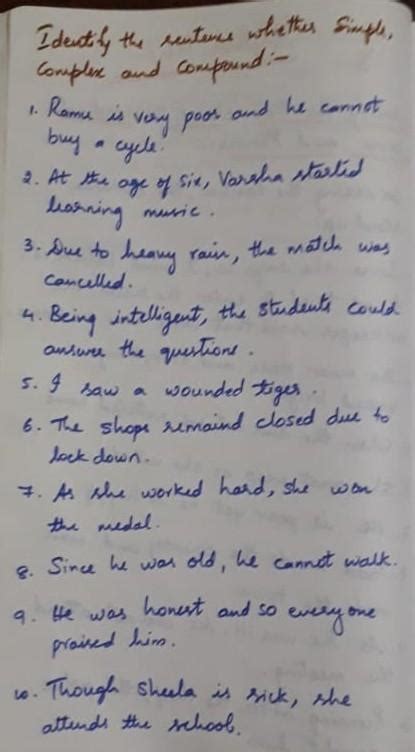 Identify the sentence whether Simple,
Complex and Compound:-
1. Ramu is very poor and he cannot
buy a cycle.
2. At the age of six, Varsha started
learning music.
3. Due to heavy rain, the match was
cancelled.
4. Being intelligent, the students could
answer the questions.
5. I saw a wounded tiger.
6. The shops remaind closed due to
lock down.
7. As she worked hard, she won
the medal.
8. Since he was old, he cannot walk.
9. He was honest and so every one
praised him.
10. Though Sheela is sick, she
attends the school.